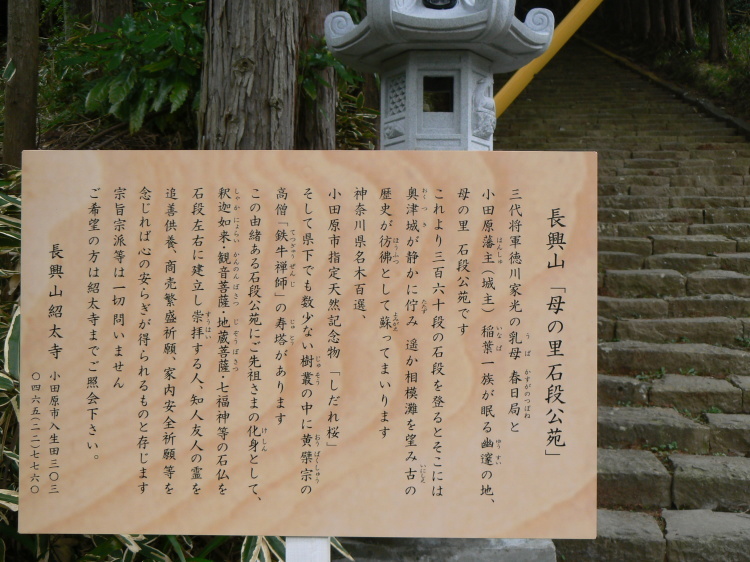 長興山「母の里石段公苑」
三代将軍徳川家光の乳母 春日局と
小田原藩主（城主） 稲葉一族が眠る幽邃の地、
母の里 石段公苑です
これより三百六十段の石段を登るとそこには
奥津城が静かに佇み 遥か相模灘を望み古の
歴史が彷彿として蘇ってまいります
神奈川県名木百選、
小田原市指定天然記念物「しだれ桜」
そして県下でも数少ない樹叢の中に黄檗宗の
高僧「鉄牛禅師」の寿塔があります
この由緒ある石段公苑にご先祖さまの化身として、
釈迦如来・観音菩薩・地蔵菩薩・七福神等の石仏を
石段左右に建立し崇拝する人、知人友人の霊を
追善供養、商売繁盛祈願、家内安全祈願、等を
念じれば心の安らぎが得られるものと存じます
宗旨宗派等は一切問いません
ご希望の方は紹太寺までご照会下さい。
長興山紹太寺 小田原市入生田三〇三
〇四六五（二二）七七六〇